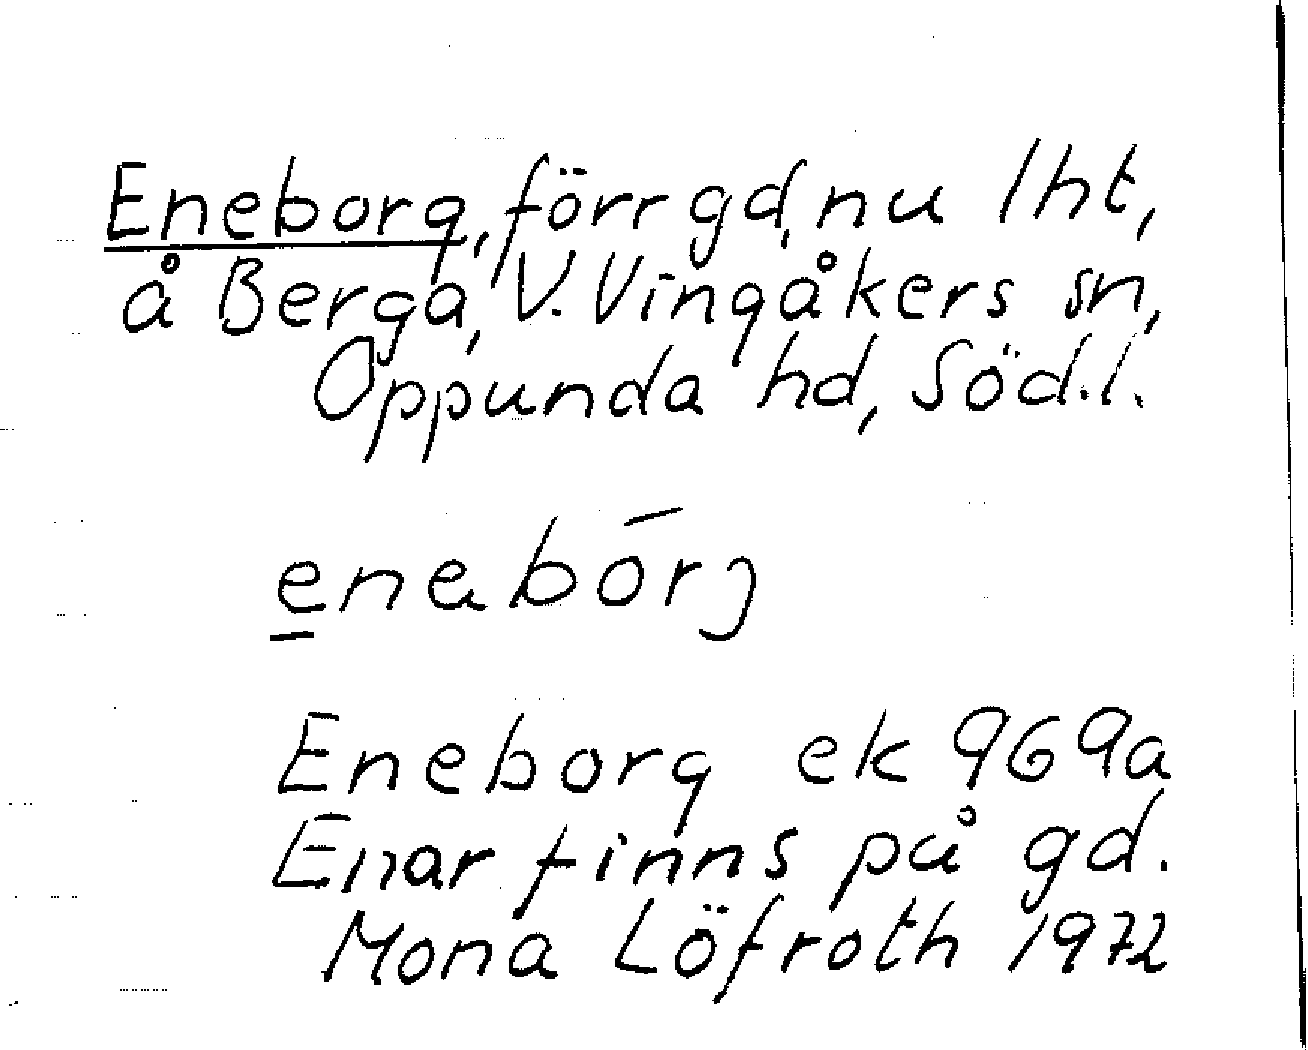 Eneborg, förr gd, nu lht,
å Berga, V. Vingåkers sn,
Oppunda hd, Söd.l.
enabórj
Eneborg ek 969a
Enar finns på gd.
Mona Löfroth 1972